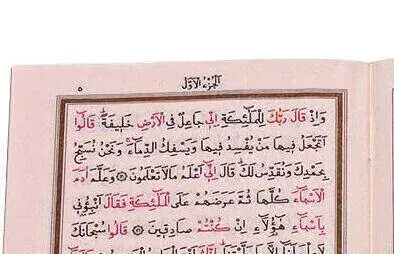 الجزء الأول
٥
وَاِذْ قَالَ رَبُّكَ لِلْمَلٰٓئِكَةِ اِنّ۪ي جَاعِلٌ فِي الْاَرْضِ خَل۪يفَةًۜ قَالُٓوا
اَتَجْعَلُ ف۪يهَا مَنْ يُفْسِدُ ف۪يهَا وَيَسْفِكُ الدِّمَٓاءَۚ وَنَحْنُ نُسَبِّحُ
بِحَمْدِكَ وَنُقَدِّسُ لَكَۜ قَالَ اِنّ۪ٓي اَعْلَمُ مَا لَا تَعْلَمُونَ ۞ وَعَلَّمَ اٰدَمَ
الْاَسْمَٓاءَ كُلَّهَا ثُمَّ عَرَضَهُمْ عَلَى الْمَلٰٓئِكَةِ فَقَالَ اَنْبِؤُ۫ن۪ي
بِاَسْمَٓاءِ هٰٓؤُ۬لَٓاءِ اِنْ كُنْتُمْ صَادِق۪ينَ ۞ قَالُوا سُبْحَانَكَ